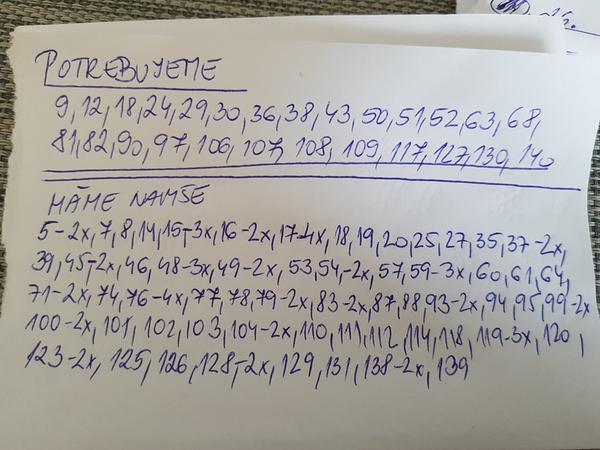 POTREBUJEME
9,12,18,24,29,30,36,38,43,50,51,52,63,68,
81,82,90,97,106,107,108,109,117,127,130,140
MÁME NAVYŠE
5-2x,7,8,14,15-3x,16-2x,17-4x,18,19,20,25,27,35,37-2x,
39,45-2x,46,48-3x,49-2x,53,54-2x,57,59-3x,60,61,64,
71-2x,74,76-4x,77,78,79-2x,83-2x,87,88,93-2x,94,95,99-2x
100-2x,101,102,103,104-2x,110,111,112,114,118,119-3x,120,
123-2x,125,126,128-2x,129,131,138-2x,139